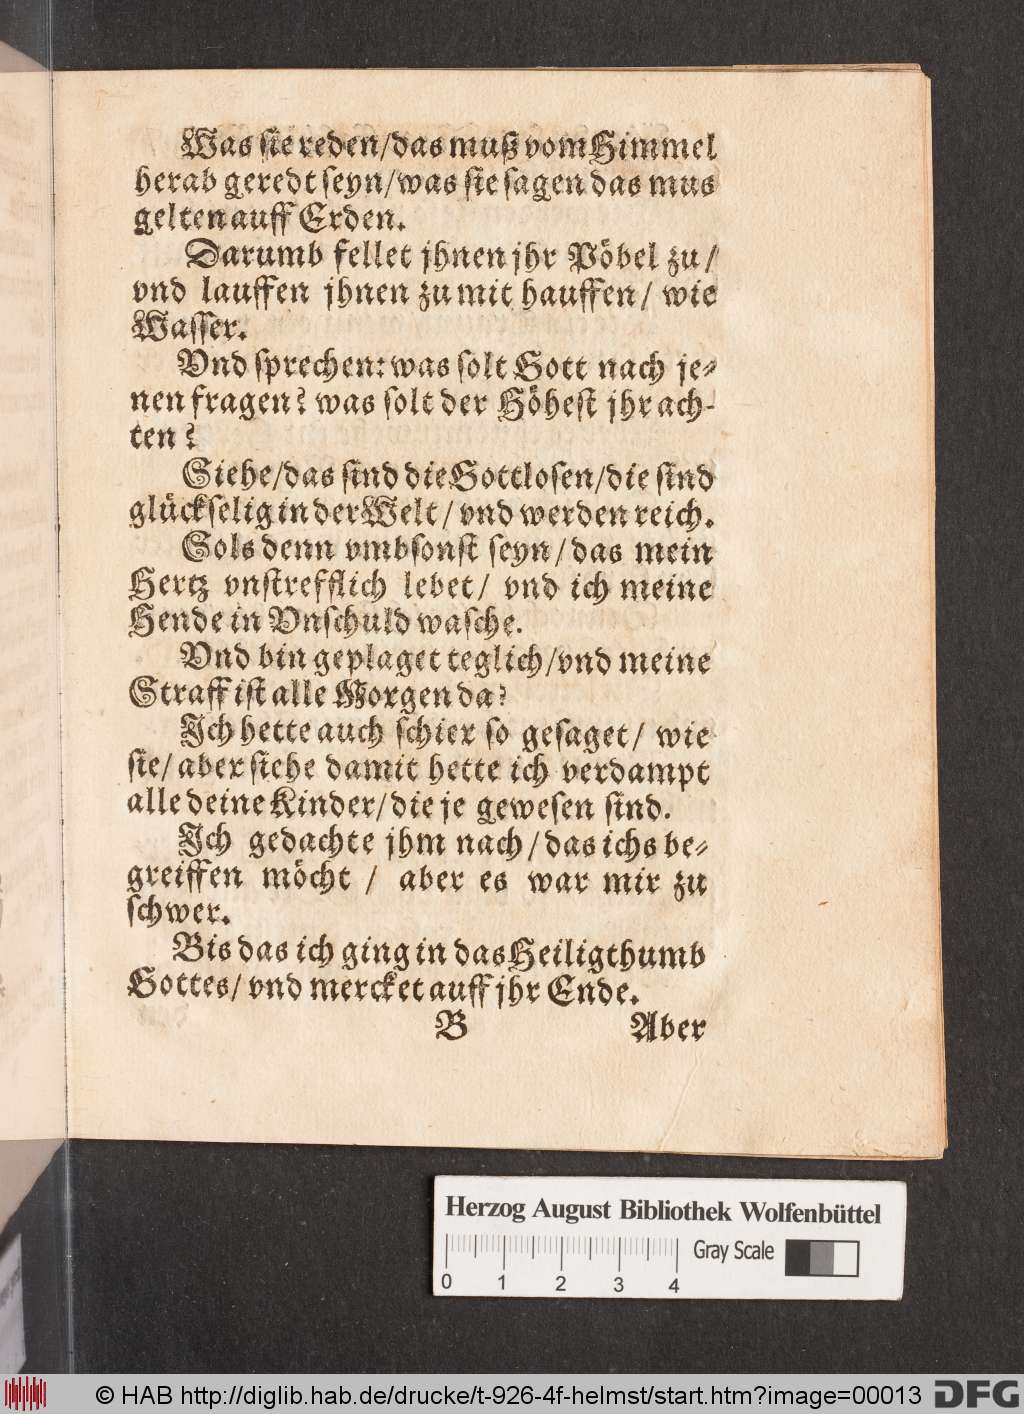 Was sie reden/das muß vom Himmel
herab geredt seyn/was sie sagen das mus
gelten auff Erden.
Darumb fellet jhnen jhr Pöbel zu/
vnd lauffen jhnen zu mit hauffen/ wie
Wasser.
Vnd sprechen: was solt Gott nach je-
nen fragen? was solt der Höhest jhr ach-
ten?
Siehe/das sind die Gottlosen/die sind
glückselig in der Welt/ vnd werden reich.
Sols denn vmbsonst seyn/das mein
Hertz vnstrefflich lebet/ vnd ich meine
Hende in Vnschuld wasche.
Vnd bin geplaget teglich/vnd meine
Straff ist alle Morgen da?
Ich hette auch schier so gesaget/ wie
sie/ aber siehe damit hette ich verdampt
alle deine Kinder/die je gewesen sind.
Ich gedachte jhm nach/das ichs be-
greiffen möcht / aber es war mir zu
schwer.
Bis das ich ging in das Heiligthumb
Gottes/ vnd mercket auff jhr Ende.
B Aber
Herzog August Bibliothek Wolfenbüttel
Gray Scale
0 1 2 3 4
© HAB http://diglib.hab.de/drucke/t-926-4f-helmst/start.htm?image=00013 DFG